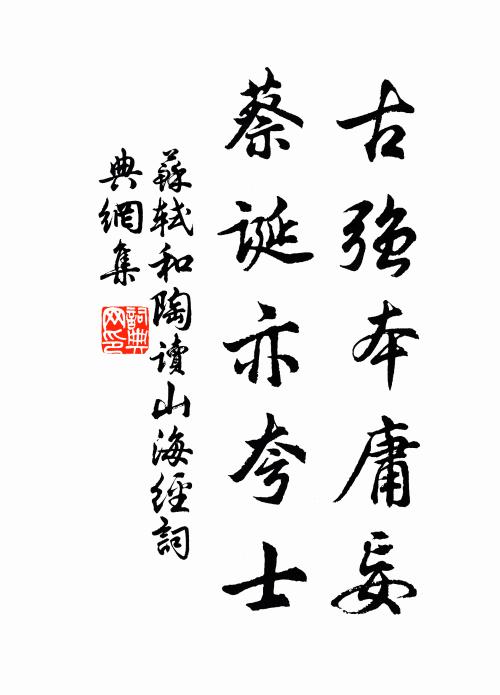 古強本庸妄
蔡誕亦夸士
蘇軾和陶讀山海經詞
典網集
詞典网印